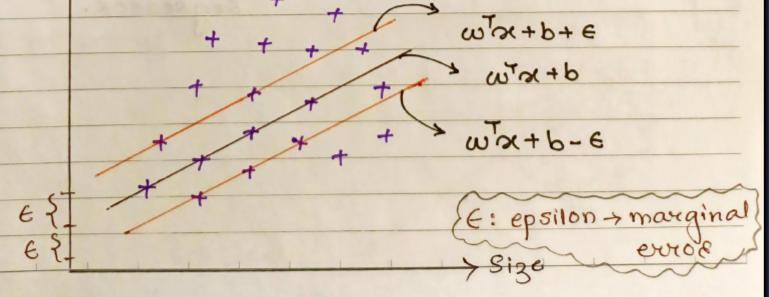 ωᵀx + b + ε
ωᵀx + b
ωᵀx + b - ε
ε {
ε {
ε: epsilon → marginal
error
Size